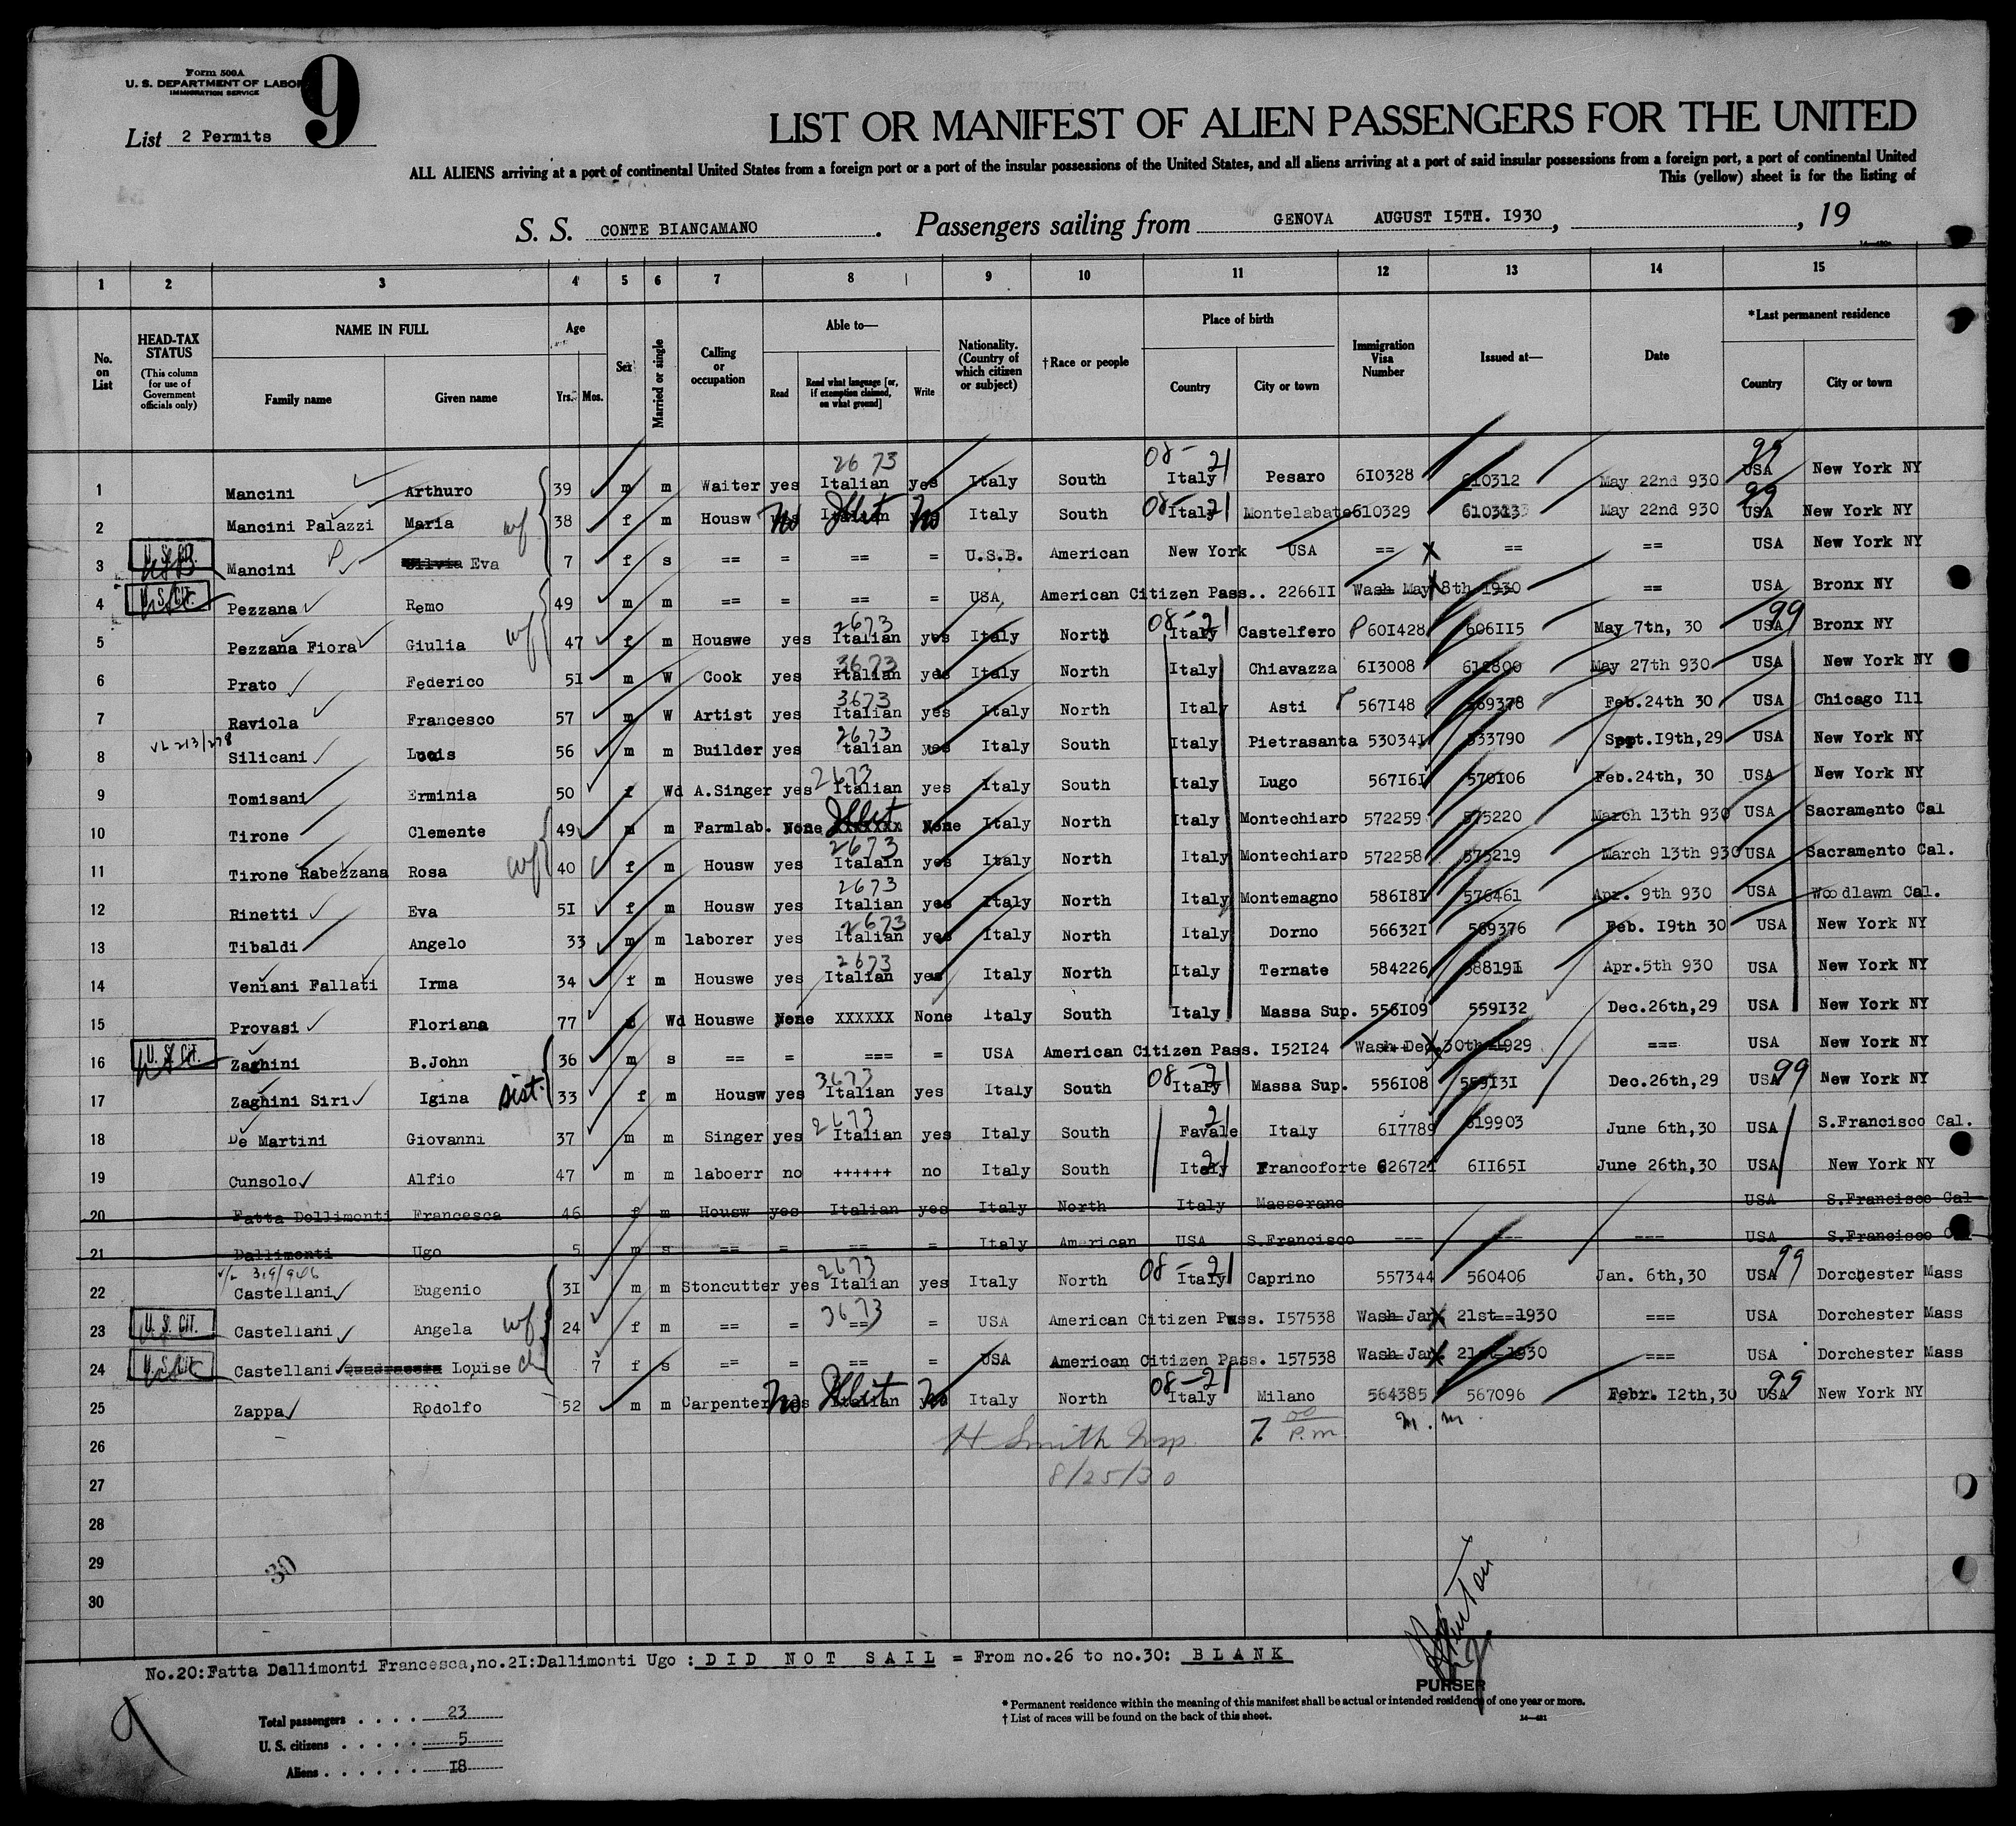 Form 500A
U. S. DEPARTMENT OF LABOR
IMMIGRATION SERVICE
9
List 2 Permits
LIST OR MANIFEST OF ALIEN PASSENGERS FOR THE UNITED
ALL ALIENS arriving at a port of continental United States from a foreign port or a port of the insular possessions of the United States, and all aliens arriving at a port of said insular possessions from a foreign port, a port of continental United
This (yellow) sheet is for the listing of
S. S. CONTE BIANCAMANO. Passengers sailing from GENOVA AUGUST I5TH. I930, , 19
1 2 3 4 5 6 7 8 9 10 11 12 13 14 15
No. on List
HEAD-TAX STATUS (This column for use of Government officials only)
NAME IN FULL Family name Given name
Age Yrs. Mos.
Sex
Married or single
Calling or occupation
Able to— Read Read what language [or, if exemption claimed, on what ground] Write
Nationality. (Country of which citizen or subject)
†Race or people
Place of birth Country City or town
Immigration Visa Number
Issued at—
Date
*Last permanent residence Country City or town
1 Mancini Arthuro 39 m m Waiter yes 26 73 Italian yes Italy South 08-21 Italy Pesaro 6I0328 6I03I2 May 22nd 930 99 USA New York NY
2 Mancini Palazzi Maria wf 38 f m Housw No Italian No Italy South 08-21 Italy Montelabate 6I0329 6I03I3 May 22nd 930 99 USA New York NY
3 U.S. CIT. Mancini Silvia Eva 7 f s == = == = U.S.B. American New York USA == X == == USA New York NY
4 U.S. CIT. Pezzana Remo 49 m m == = == = USA American Citizen Pass.. 2266II Wash May 8th I930 == USA Bronx NY
5 Pezzana Fiora Giulia wf 47 f m Houswe yes 2673 Italian yes Italy North 08-21 Italy Castelfero P 60I428 606II5 May 7th, 30 USA 99 Bronx NY
6 Prato Federico 5I m W Cook yes 3673 Italian yes Italy North Italy Chiavazza 6I3008 6I2800 May 27th 930 USA New York NY
7 Raviola Francesco 57 m W Artist yes 3673 Italian yes Italy North Italy Asti 567I48 569378 Feb.24th 30 USA Chicago Ill
8 Silicani Louis 56 m m Builder yes 2673 talian yes Italy South Italy Pietrasanta 53034I 533790 Sept.I9th,29 USA New York NY
9 Tomisani Erminia 50 f Wd A.Singer yes 2673 Italian yes Italy South Italy Lugo 567I6I 570I06 Feb.24th, 30 USA New York NY
10 Tirone Clemente 49 m m Farmlab. None XXXXXXX None Italy North Italy Montechiaro 572259 575220 March I3th 930 USA Sacramento Cal
11 Tirone Rabezzana Rosa wf 40 f m Housw yes 2673 Italain yes Italy North Italy Montechiaro 572258 5752I9 March I3th 930 USA Sacramento Cal.
12 Rinetti Eva 5I f m Housw yes 2673 Italian yes Italy North Italy Montemagno 586I8I 576461 Apr. 9th 930 USA Woodlawn Cal.
13 Tibaldi Angelo 33 m m laborer yes 2673 Italian yes Italy North Italy Dorno 56632I 569376 Feb. I9th 30 USA New York NY
14 Veniani Fallati Irma 34 f m Houswe yes 2673 Italian yes Italy North Italy Ternate 584226 588I9I Apr.5th 930 USA New York NY
15 Provasi Floriana 77 Wd Houswe None XXXXXX None Italy South Italy Massa Sup. 556I09 559I32 Dec.26th,29 USA New York NY
16 U.S. CIT. Zaghini B.John 36 m s == = === = USA American Citizen Pass. I52I24 Wash Dec.30th I929 === USA New York NY
17 Zaghini Siri Igina sist. 33 f m Housw yes 3673 Italian yes Italy South 08-21 Italy Massa Sup. 556I08 559I3I Dec.26th,29 USA 99 New York NY
18 De Martini Giovanni 37 m m Singer yes 2673 Italian yes Italy South 21 Favale Italy 6I7789 6I9903 June 6th,30 USA S.Francisco Cal.
19 Cunsolo Alfio 47 m m laboerr no ++++++ no Italy South 21 Italy Francoforte 62672I 6II65I June 26th,30 USA New York NY
20 Fatta Dollimonti Francesca 46 f m Housw yes Italian yes Italy North Italy Masserano USA S.Francisco Cal
21 Dallimonti Ugo 5 m s == = == = Italy American USA S.Francisco --- --- --- USA S.Francisco Cal
22 Castellani Eugenio 3I m m Stoncutter yes 2673 Italian yes Italy North 08-21 Italy Caprino 557344 560406 Jan. 6th,30 USA 99 Dorchester Mass
23 U.S. CIT. Castellani Angela wf 24 f m == = 3673 == = USA American Citizen Pass. I57538 Wash Jan 21st I930 === USA Dorchester Mass
24 U.S. CIT. Castellani Louise ch 7 f s == = == = USA American Citizen Pass. I57538 Wash Jan. 21st I930 === USA Dorchester Mass
25 Zappa Rodolfo 52 m m Carpenter No Italian No Italy North 08-21 Italy Milano 564385 567096 Febr. I2th,30 USA 99 New York NY
26 H Smith Insp. 7 00 P.m. m.m.
27 8/25/30
28
29
30
30
No.20:Fatta Dallimonti Francesca,no.2I:Dallimonti Ugo : DID NOT SAIL = From no.26 to no.30: BLANK
PURSER
9
Total passengers . . . . 23
U. S. citizens . . . . . 5
Aliens . . . . . . I8
* Permanent residence within the meaning of this manifest shall be actual or intended residence of one year or more.
† List of races will be found on the back of this sheet.
14—421